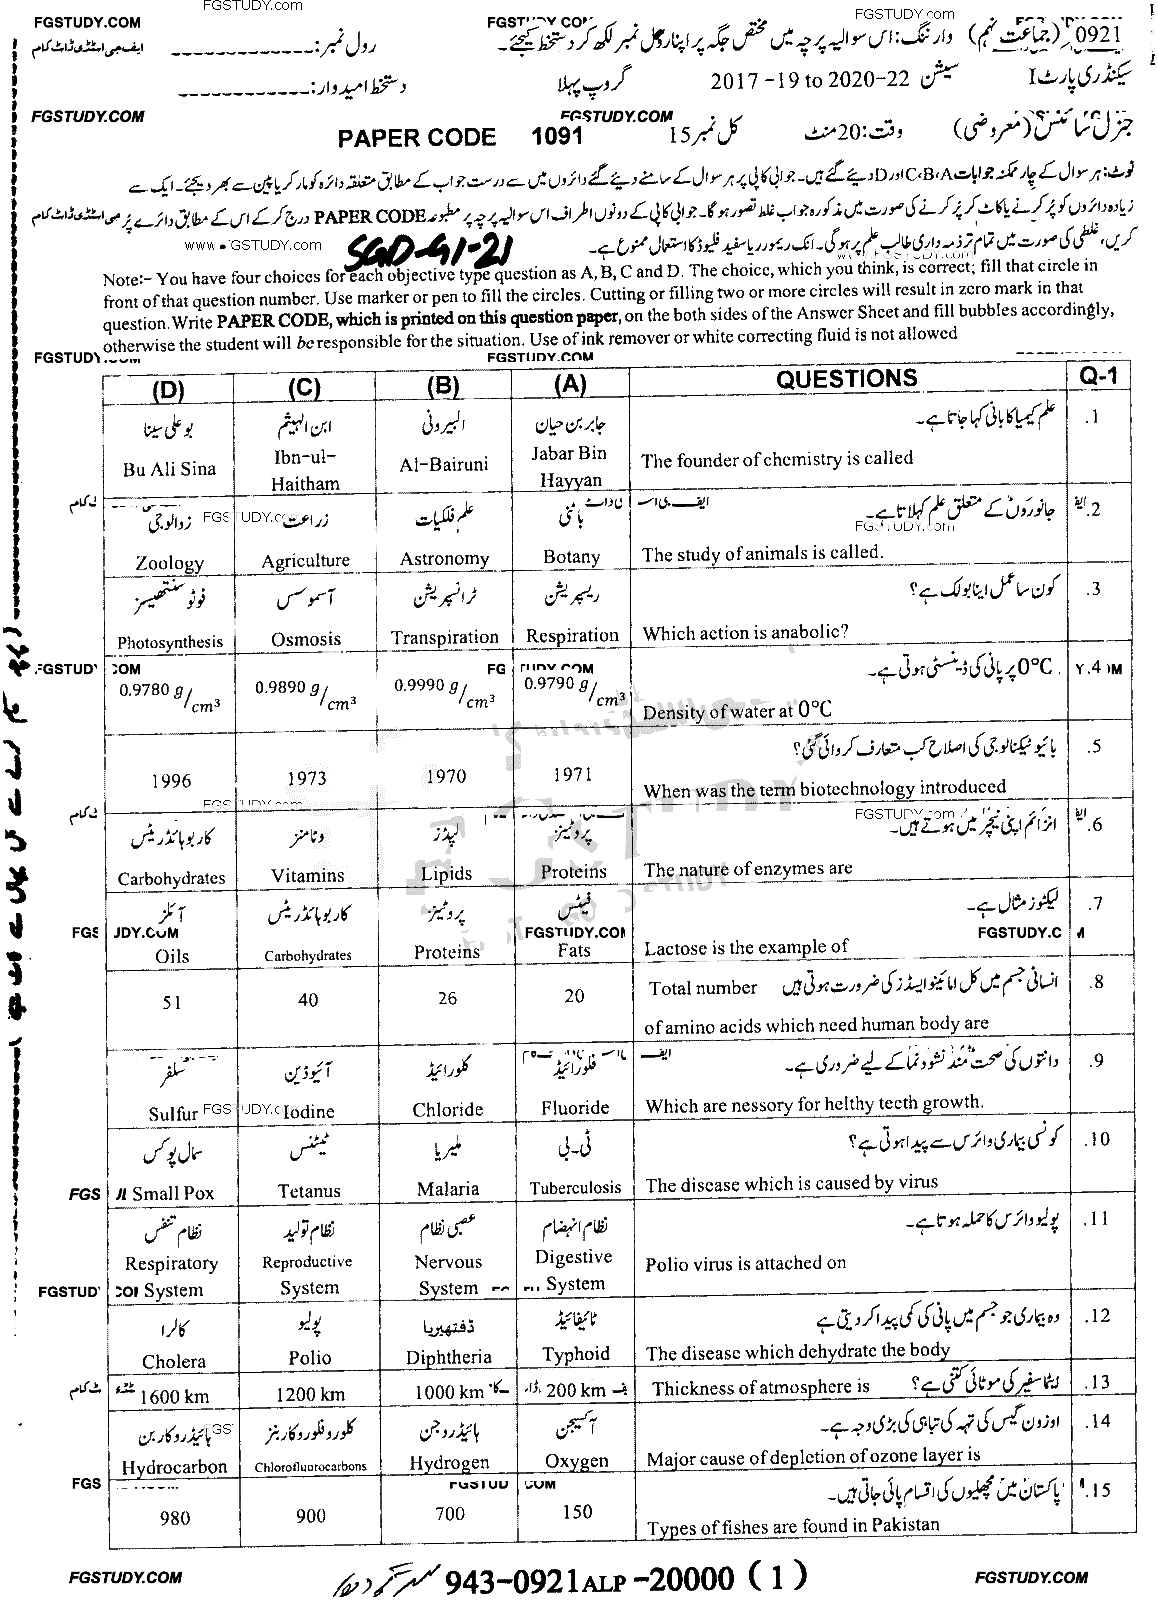 FGSTUDY.COM
FGSTUDY.com
FGSTUDY COM
FGSTUDY.com
0921 (جماعت نہم) وارننگ: اس سوالیہ پرچہ میں مختص جگہ پر اپنا رول نمبر لکھ کر دستخط کیجئے۔ رول نمبر:
ایف جی اسٹڈی ڈاٹ کام
سیکنڈری پارٹ I سیشن 2017-19 to 2020-22 گروپ پہلا دستخط امیدوار:
FGSTUDY.COM
FGSTUDY.COM
جنرل سائنس (معروضی) وقت: 20 منٹ کل نمبر 15 PAPER CODE 1091
نوٹ: ہر سوال کے چار ممکنہ جوابات A، B، C اور D دیئے گئے ہیں۔ جوابی کاپی پر ہر سوال کے سامنے دیئے گئے دائروں میں سے درست جواب کے مطابق متعلقہ دائرہ کو مارکر یا پین سے بھر دیجئے۔ ایک سے
زیادہ دائروں کو پُر کرنے یا کاٹ کر پُر کرنے کی صورت میں مذکورہ جواب غلط تصور ہوگا۔ جوابی کاپی کے دونوں اطراف اس سوالیہ پرچہ پر مطبوعہ PAPER CODE درج کر کے اس کے مطابق دائرے پُر
کریں، غلطی کی صورت میں تمام تر ذمہ داری طالب علم پر ہوگی۔ انک ریموور یا سفید فلیوڈ کا استعمال ممنوع ہے۔
SGD-G1-21
Note:- You have four choices for each objective type question as A, B, C and D. The choice, which you think, is correct; fill that circle in
front of that question number. Use marker or pen to fill the circles. Cutting or filling two or more circles will result in zero mark in that
question. Write PAPER CODE, which is printed on this question paper, on the both sides of the Answer Sheet and fill bubbles accordingly,
otherwise the student will be responsible for the situation. Use of ink remover or white correcting fluid is not allowed
FGSTUDY.COM
(D) (C) (B) (A) QUESTIONS Q-1
بو علی سینا ابن الہیثم البیرونی جابر بن حیان علم کیمیا کا بانی کہا جاتا ہے۔ .1
Bu Ali Sina Ibn-ul-Haitham Al-Bairuni Jabar Bin Hayyan The founder of chemistry is called
زوالوجی زراعت علم فلکیات باٹنی جانوروں کے متعلق علم کہلاتا ہے۔ .2
Zoology Agriculture Astronomy Botany The study of animals is called.
فوٹو سنتھیسز آسموسس ٹرانسپریشن ریسپریشن کون سا عمل اینابولک ہے؟ .3
Photosynthesis Osmosis Transpiration Respiration Which action is anabolic?
0°C پر پانی کی ڈینسٹی ہوتی ہے۔ .4
0.9780 g/cm³ 0.9890 g/cm³ 0.9990 g/cm³ 0.9790 g/cm³ Density of water at 0°C
بائیو ٹیکنالوجی کی اصلاح کب متعارف کروائی گئی؟ .5
1996 1973 1970 1971 When was the term biotechnology introduced
کاربوہائڈریٹس وٹامنز لپڈز پروٹینز انزائم اپنی نیچر میں ہوتے ہیں۔ .6
Carbohydrates Vitamins Lipids Proteins The nature of enzymes are
آئلز کاربوہائڈریٹس پروٹینز فیٹس لیکٹوز مثال ہے۔ .7
Oils Carbohydrates Proteins Fats Lactose is the example of
51 40 26 20 Total number انسانی جسم میں کل امائینو ایسڈز کی ضرورت ہوتی ہیں .8
of amino acids which need human body are
سلفر آئیوڈین کلورائیڈ فلورائیڈ دانتوں کی صحت مند نشوونما کے لیے ضروری ہے۔ .9
Sulfur Iodine Chloride Fluoride Which are nessory for helthy teeth growth.
سمال پوکس ٹیٹنس ملیریا ٹی۔بی کونسی بیماری وائرس سے پیدا ہوتی ہے؟ .10
Small Pox Tetanus Malaria Tuberculosis The disease which is caused by virus
نظام تنفس نظام تولید عصبی نظام نظام انہضام پولیو وائرس کا حملہ ہوتا ہے۔ .11
Respiratory System Reproductive System Nervous System Digestive System Polio virus is attached on
کالرا پولیو ڈفتھیریا ٹائیفائیڈ وہ بیماری جو جسم میں پانی کی کمی پیدا کر دیتی ہے .12
Cholera Polio Diphtheria Typhoid The disease which dehydrate the body
1600 km 1200 km 1000 km 200 km Thickness of atmosphere is ایٹماسفیر کی موٹائی کتنی ہے؟ .13
ہائیڈروکاربن کلوروفلوروکاربنز ہائیڈروجن آکسیجن اوزون گیس کی تہہ کی تباہی کی بڑی وجہ ہے۔ .14
Hydrocarbon Chlorofluorocarbons Hydrogen Oxygen Major cause of depletion of ozone layer is
پاکستان میں مچھلیوں کی اقسام پائی جاتی ہیں۔ .15
980 900 700 150 Types of fishes are found in Pakistan
FGSTUDY.COM
943-0921ALP-20000 (1)
FGSTUDY.COM